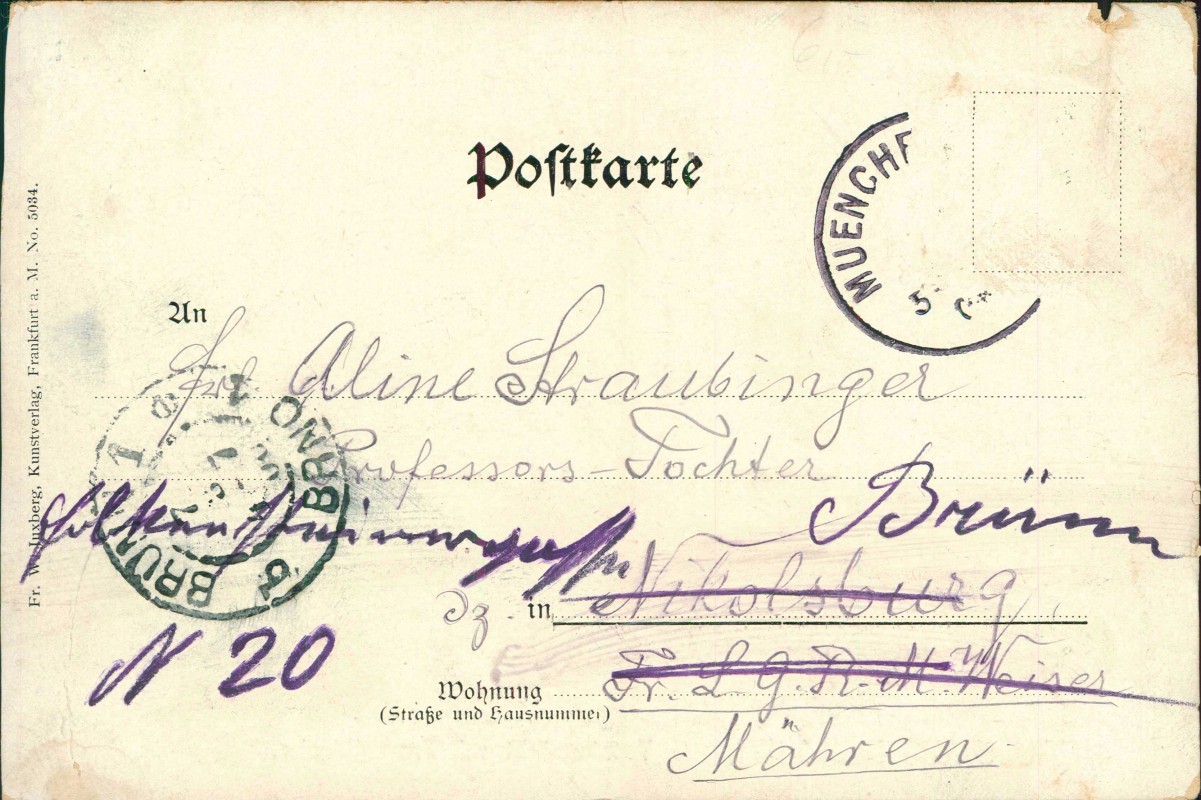 Postkarte
MUENCHE
5
An
Frl Aline Straubinger
Professors-Tochter
Brünn
in Nikolsburg
N 20
Wohnung Fr. L. G. R. M. Weiser
(Straße und Hausnummer)
Mähren
BRÜNN BRNO
1
3
Fr. W. Juxberg, Kunstverlag, Frankfurt a. M. No. 5034.